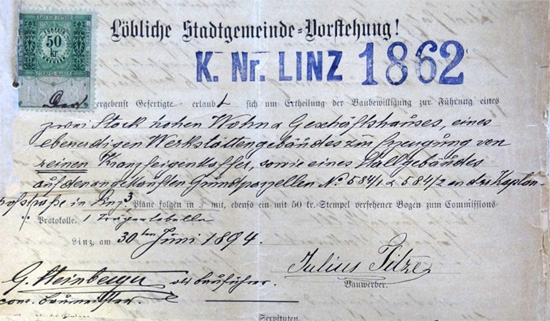 50
kr.
Löbliche Stadtgemeinde-Vorstehung!
K. Nr. LINZ 1862
Der ergebenst Gefertigte erlaubt sich um Ertheilung der Baubewilligung zur Führung eines
zwei Stock hohen Wohn & Geschäftshauses, eines
ebenerdigen Werkstättengebäudes zur Erzeugung von
reinen Kranzfeigenkaffee, sowie eines Stallgebäudes
auf den angekauften Grundparzellen No 584/1 & 584/2 an der Kaplan-
hofstraße in Linz
Pläne folgen in mit, ebenso ein mit 50 kr. Stempel versehener Bogen zum Commissions-
Protokolle. 1 Trägertabelle
Linz, am 30ten Juni 1894.
G. Steinberger als Bauführer.
conc. Baumeister.
Julius Titze
Bauwerber.
Servituten.